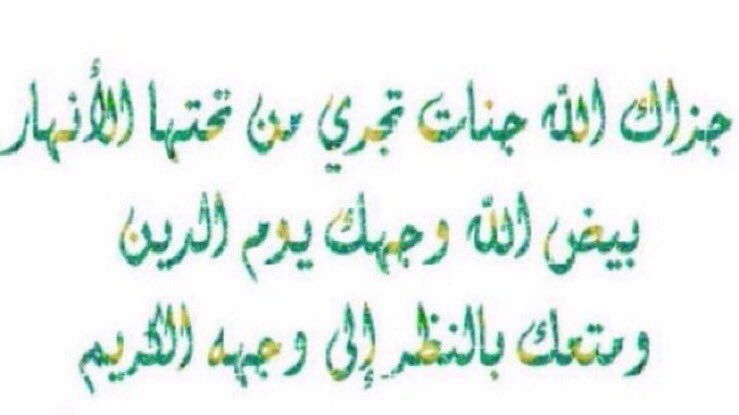 جذاك الله جنات تجري من تحتها الأنهار
بيض الله وجهك يوم الدين
ومتعك بالنظر إلى وجهه الكريم